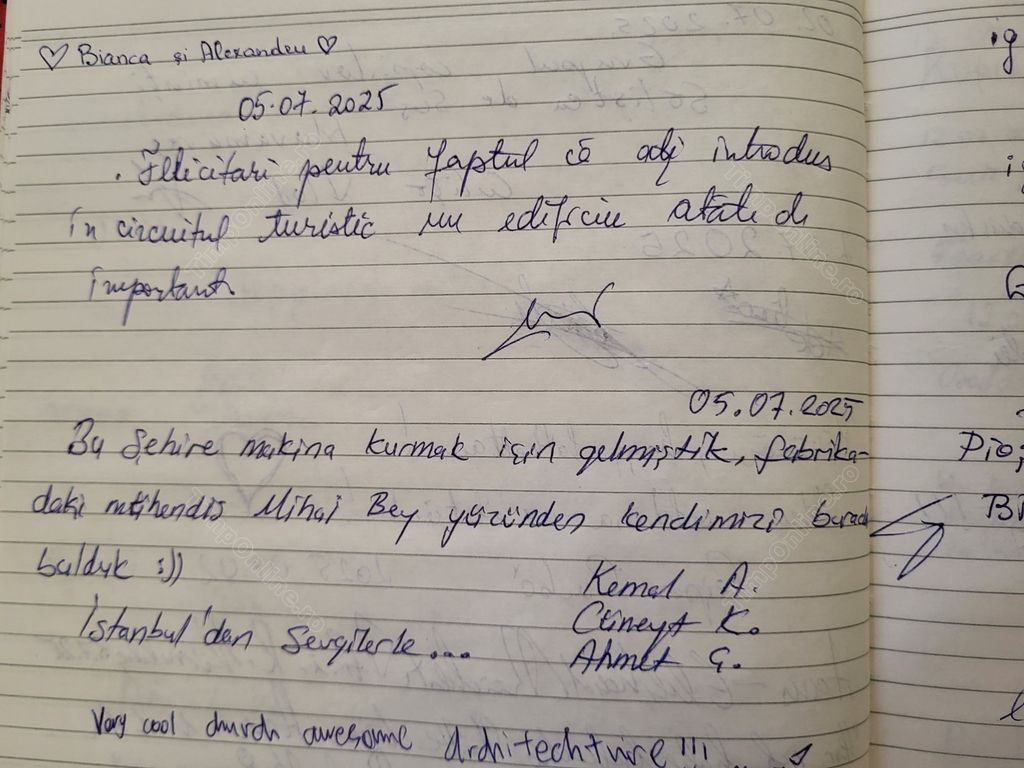 ♡ Bianca și Alexandru ♡
05.07.2025
. Felicitari pentru faptul că ați introdus
în circuitul turistic un edificiu atât de
important
05.07.2025
Bu Şehire makina kurmak için gelmiştik, fabrika-
daki mühendis Mihai Bey yüzünden kendimizi burada
bulduk :))
Kemal A.
İstanbul'dan Sevgilerle...
Cüneyt K.
Ahmet Ç.
Very cool church awesome Architechture!!!
ig
Pio